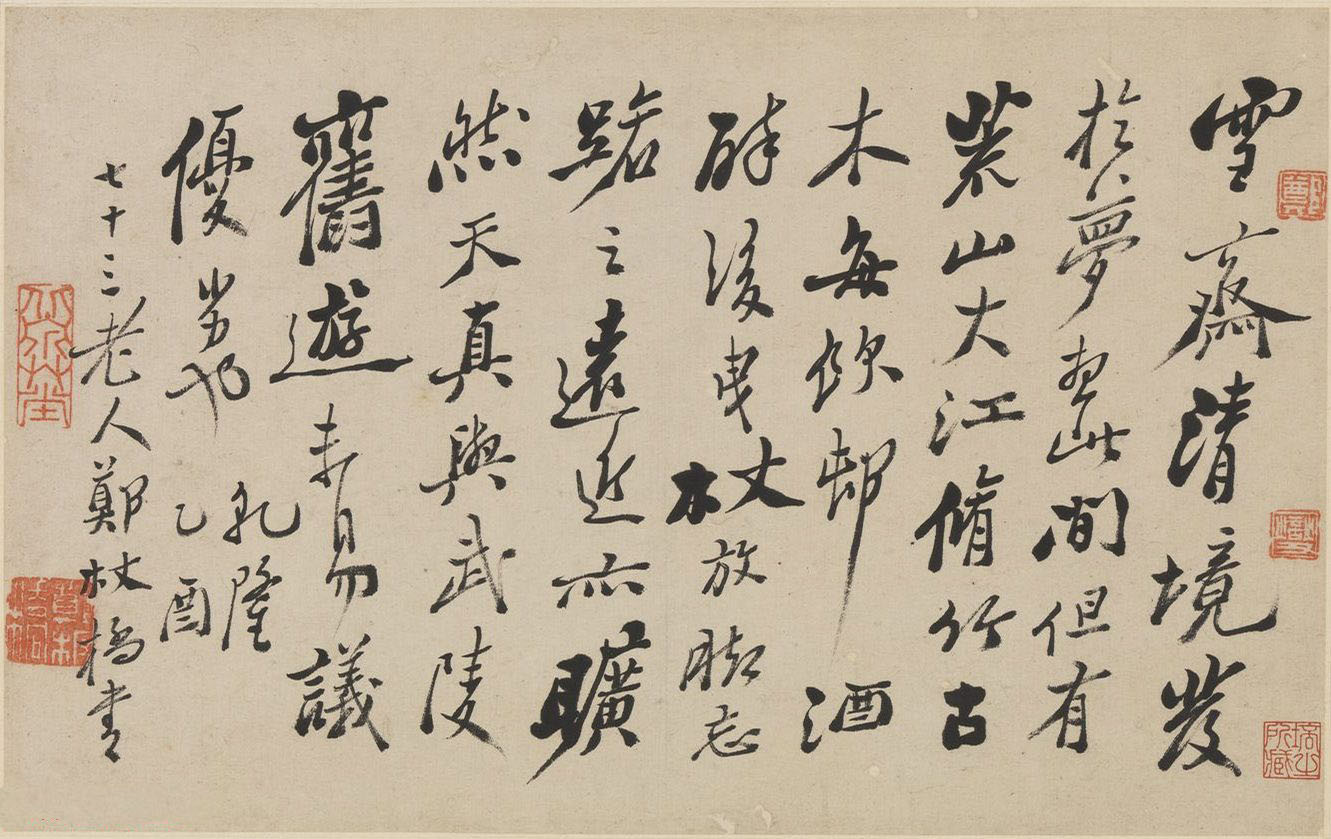 雪齋清境發
於夢想此間但有
荒山大江脩竹古
木每飲邨酒
醉後曳杖放腳忘
路之遠近亦曠
然天真與武陵
舊遊未易議
優劣也
乾隆
乙酉
七十三老人鄭板橋書